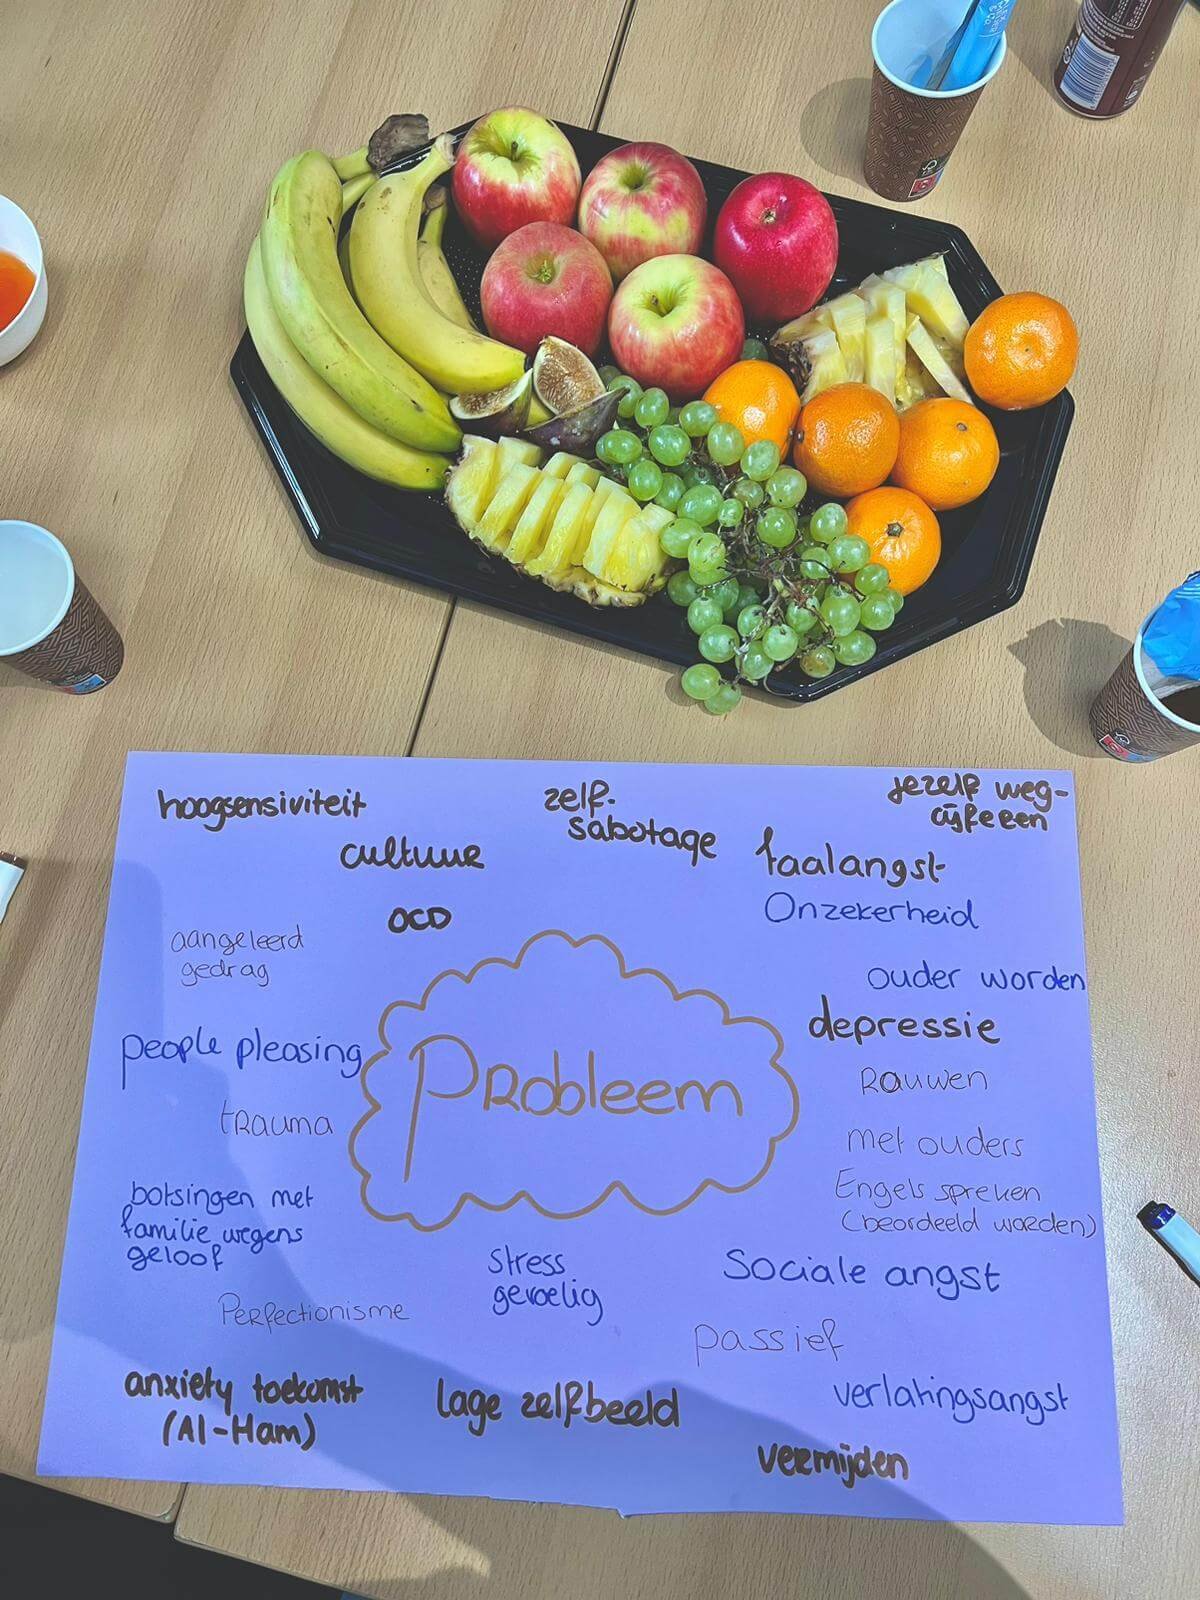 hoogsensiviteit
zelf-
sabotage
jezelf weg-
cijferen
cultuur
faalangst
Onzekerheid
OCD
aangeleerd
gedrag
ouder worden
depressie
people pleasing
Probleem
Rouwen
trauma
met ouders
Engels spreken
(beordeeld worden)
botsingen met
familie wegens
geloof
stress
gevoelig
Sociale angst
Perfectionisme
passief
anxiety toekomst
(Al-Ham)
lage zelfbeeld
verlatingsangst
vermijden